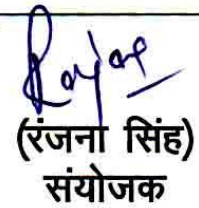 (रंजना सिंह)
संयोजक